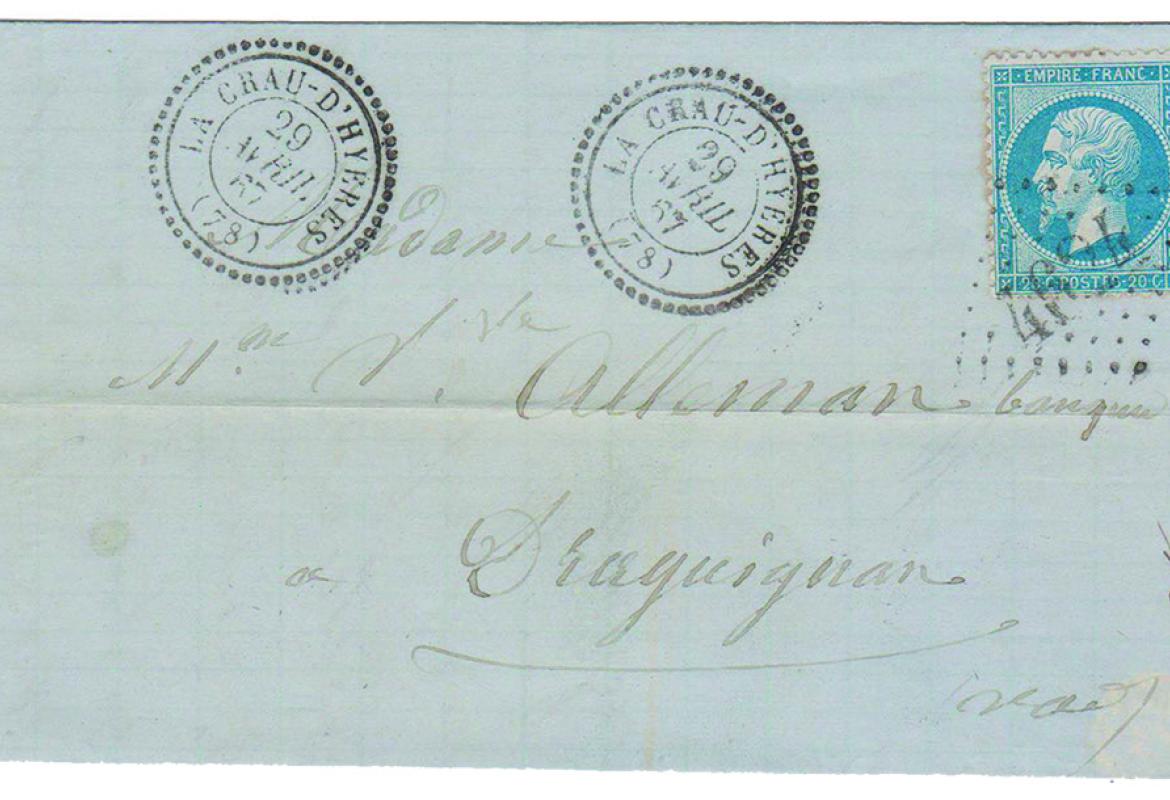 LA CRAU-D'HYERES
29
AVRIL
67
(78)
LA CRAU-D'HYERES
29
AVRIL
67
(78)
EMPIRE FRANC
20 C POSTES 20 C
Madame
Mme Vve Alleman
a Draguignan
var